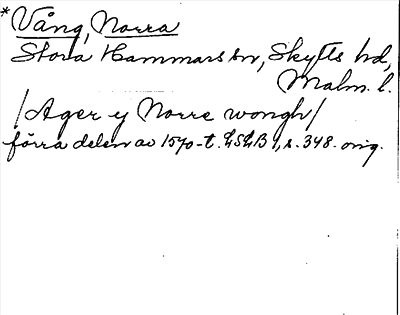 *Vång, Norra
Stora Hammars sn, Skytts hd,
Malm. l.
/Ager y Norre wongh/
förra delen av 1570-t. LSLB 1, s. 348. orig.